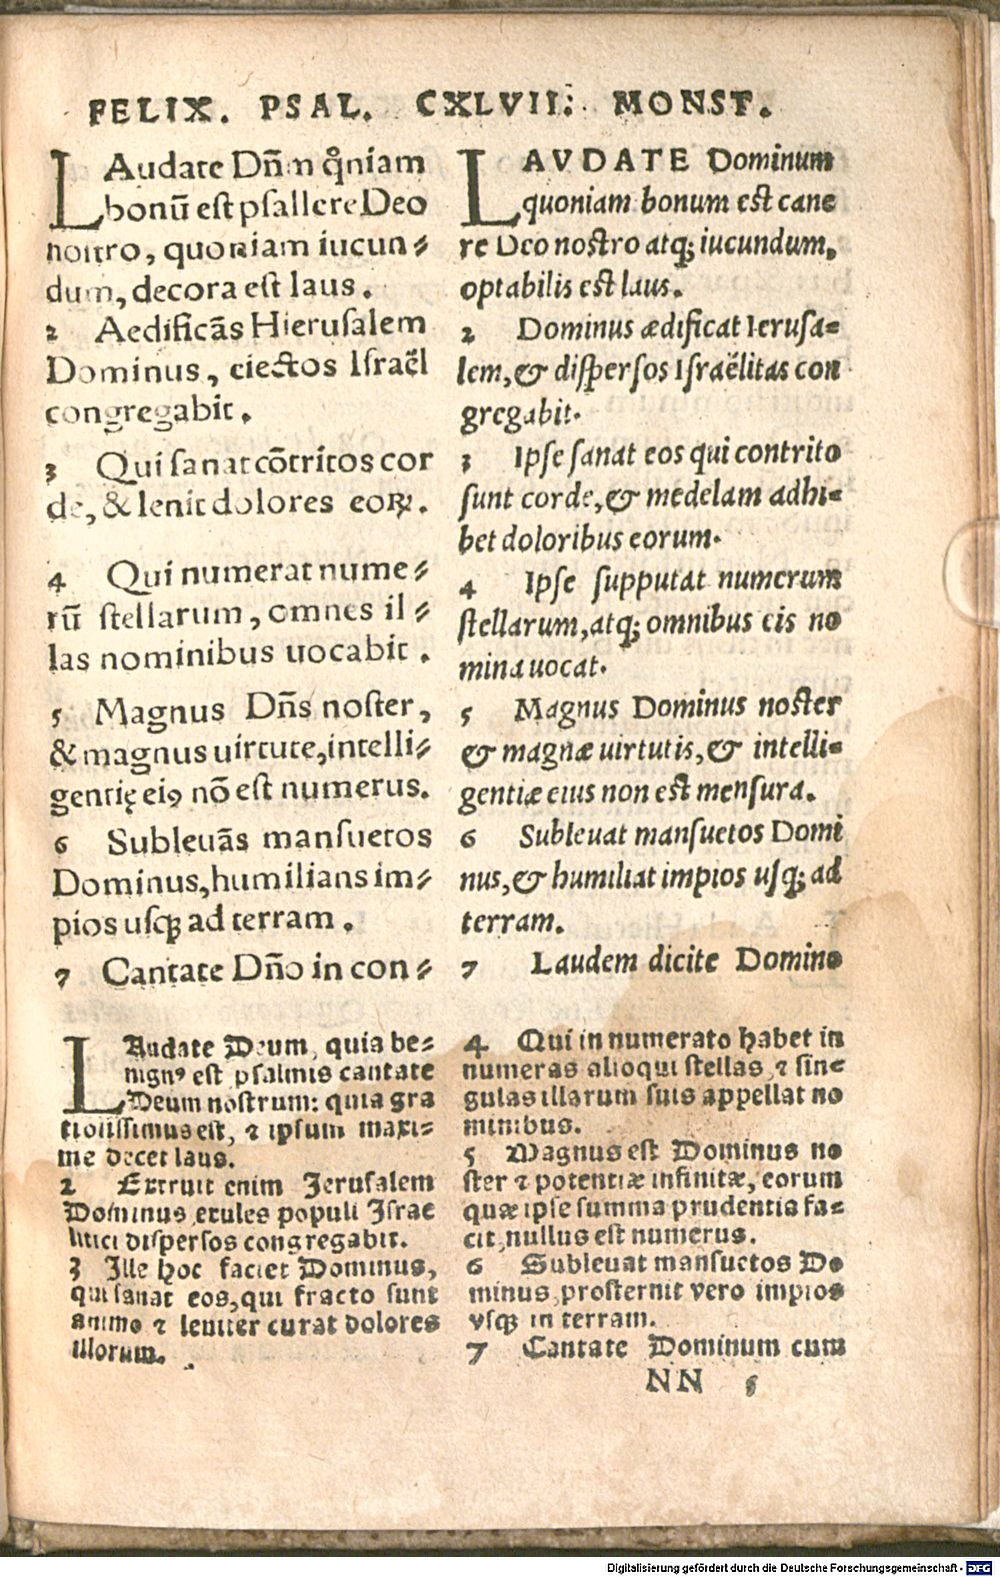 FELIX. PSAL. CXLVII. MONST.
LAudate Dñm qñiam
bonũ est psallere Deo
nostro, quoniam iucun⸗
dum, decora est laus.
2 Aedificãs Hierusalem
Dominus, eiectos Israël
congregabit.
3 Qui sanat cõtritos cor
de, & lenit dolores eoꝝ.
4 Qui numerat nume⸗
rũ stellarum, omnes il⸗
las nominibus uocabit.
5 Magnus Dñs noster,
& magnus uirtute, intelli⸗
gentię eiꝰ nõ est numerus.
6 Subleuãs mansuetos
Dominus, humilians im⸗
pios usqꝫ ad terram.
7 Cantate Dño in con⸗
LAVDATE Dominum
quoniam bonum est cane
re Deo nostro atqꝫ iucundum,
optabilis est laus.
2 Dominus ædificat Ierusa⸗
lem, & dispersos Israëlitas con
gregabit.
3 Ipse sanat eos qui contrito
sunt corde, & medelam adhi⸗
bet doloribus eorum.
4 Ipse supputat numerum
stellarum, atqꝫ omnibus eis no
mina uocat.
5 Magnus Dominus noster
& magnæ uirtutis, & intelli⸗
gentiæ eius non est mensura.
6 Subleuat mansuetos Domi
nus, & humiliat impios usqꝫ ad
terram.
7 Laudem dicite Domino
LAudate Deum, quia be⸗
nignꝰ est psalmis cantate
Deum nostrum: quia gra
tiosissimus est, ⁊ ipsum maxi⸗
me decet laus.
2 Extruit enim Jerusalem
Dominus, exules populi Israe
litici dispersos congregabit.
3 Ille hoc faciet Dominus,
qui sanat eos, qui fracto sunt
animo ⁊ leniter curat dolores
illorum.
4 Qui in numerato habet in
numeras alioqui stellas, ⁊ sin⸗
gulas illarum suis appellat no
minibus.
5 Magnus est Dominus no
ster ⁊ potentiæ infinitæ, eorum
quæ ipse summa prudentia fa⸗
cit, nullus est numerus.
6 Subleuat mansuetos Do
minus, prosternit vero impios
vsqꝫ in terram.
7 Cantate Dominum cum
NN 5
Digitalisierung gefördert durch die Deutsche Forschungsgemeinschaft - DFG